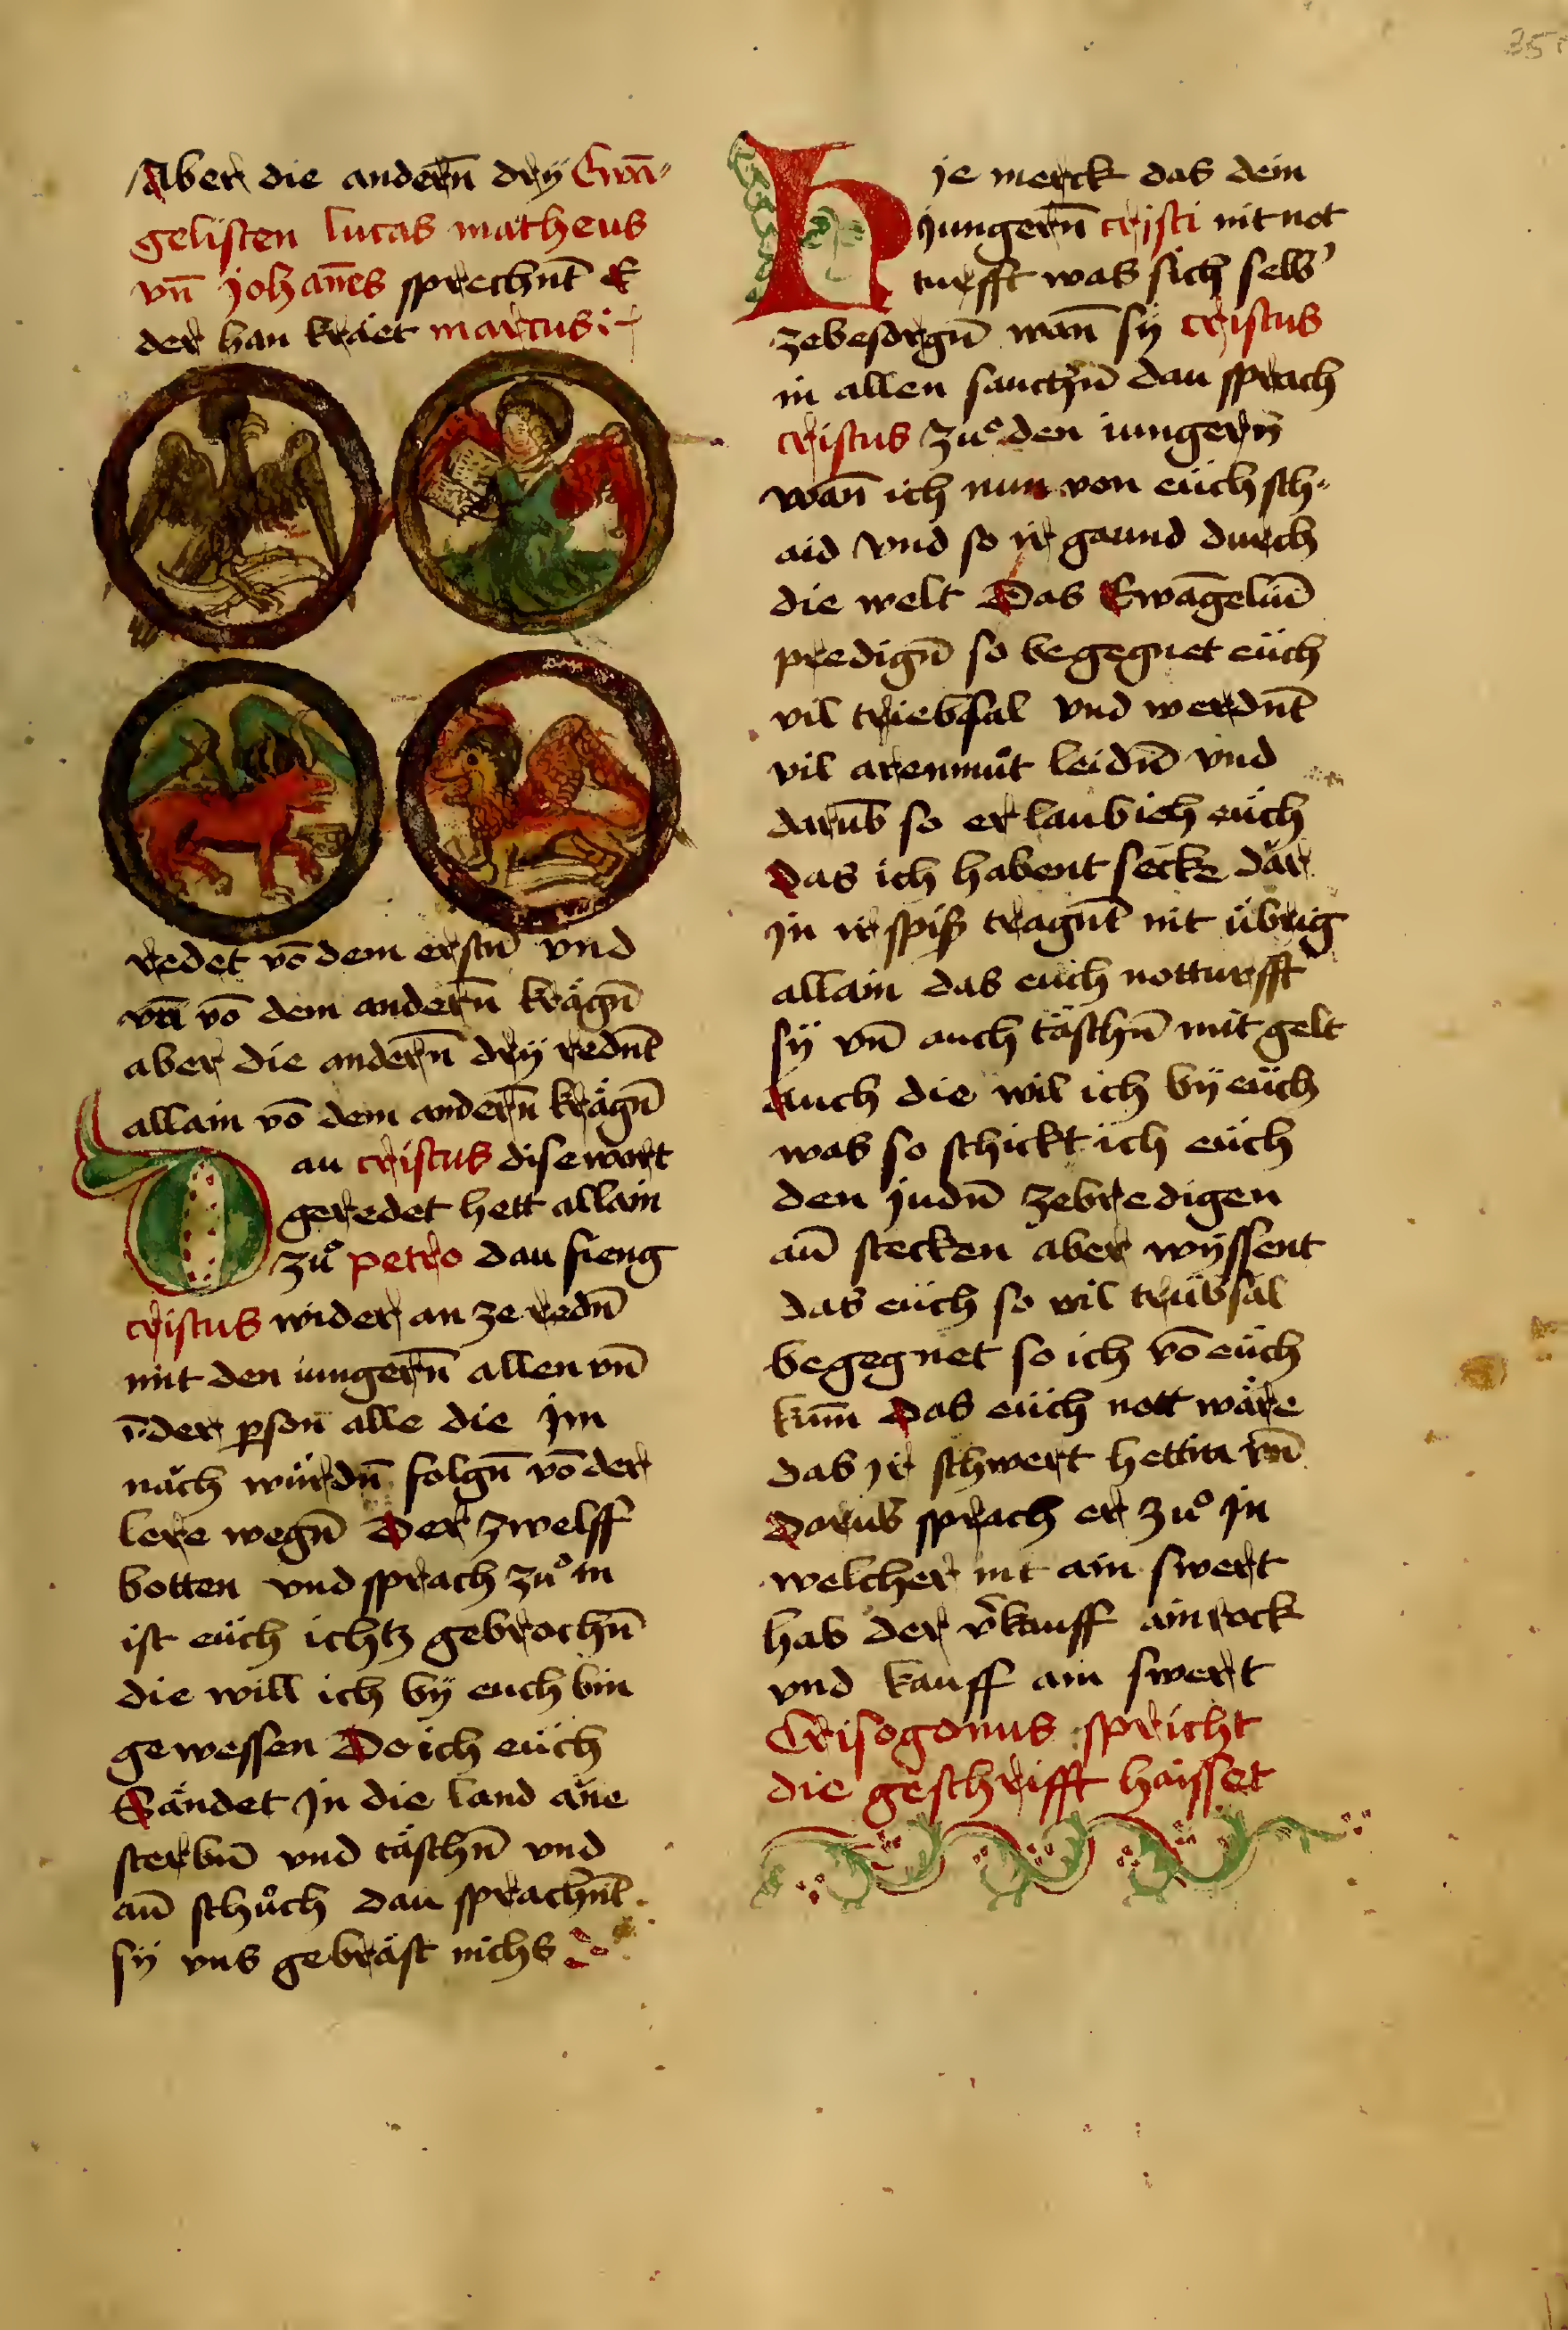 Aber die andern̄ drÿ Ewā-
gelisten lucas matheus
vn̄ johan̄es sprechnt̄ E
der han kräet marcus
redet vō dem erstn̄ vnd
vn̄ vō dem andern̄ krägn̄
aber die andern̄ drÿ rednt̄
allain vō dem andern̄ krägn̄
Dau cristus dise wort
geredet hett allain
zuͦ petro dau fieng
cristus wider an ze redn̄
mit den iungern̄ allen vn̄
der ꝑson alle die jm
näch würdn̄ folgn̄ vō der
lere wegn̄ Der zwelff
botten vnd sprach zuͦ in
ist eüch ichtz gebrochn̄
die will ich bÿ euch bin
gewessen Do ich eüch
Sändet jn die land äne
sterbn̄ vnd täschn̄ vnd
an̄ schuͦch dau sprachent̄
sÿ vns gebräst nichs
Hie merck das dem
jungern̄ cristi nit not
turfft was sich selb'
zebesorgn̄ wan̄ sÿ cristus
in allen sanctzn̄ dau sprach
cristus zuͦ den iungern̄
wan̄ ich nun von eüch sch-
aid vnd so ir gaund durch
die welt Das Ewāgeliū
predign̄ so begegnet eüch
vil triebsal vnd werdnt̄
vil arenmuͦt leidn̄ vnd
darūb so erlaub ich eüch
Das ich habent secke dar
jn ir spiß tragnt̄ nit übrig
allain das euch notturfft
sÿ vn̄ auch täschn̄ mit gelt
Auch die wil ich bÿ eüch
was so schickt ich eüch
den judn̄ zebredigen
an̄ stecken aber wÿssent
das eüch so vil trübsal
begegnet so ich vō eüch
kum̄ Das eüch nott wäre
das jr schwert hettin vn̄
Dorūb sprach er zuͦ jn
welcher nit ain swert
hab der v̄kauff ain rock
vnd kauff ain swert
Crisogonus spricht
die geschrifft haisset